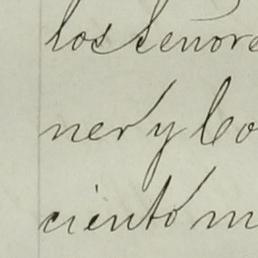 los señore
ner y Co
ciento m